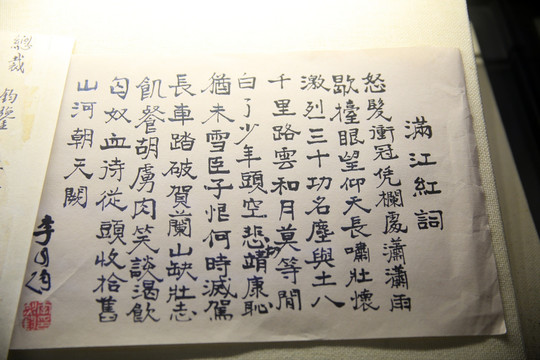 滿江紅詞
怒髮衝冠凭欄處瀟瀟雨
歇擡眼望仰天長嘯壯懷
激烈三十功名塵與土八
千里路雲和月莫等閒
白了少年頭空悲切靖康恥
猶未雪臣子恨何時滅駕
長車踏破賀蘭山缺壯志
飢餐胡虜肉笑談渴飲
匈奴血待從頭收拾舊
山河朝天闕
總裁
鈞鑒